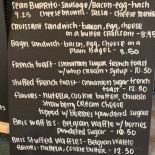 Dean Burrito - Sausage/bacon-egg-hash
9.25 cheese - salsa - cheese
Croissant Sandwich - bacon,
cheese on a butter croissant - 9.95
Bagel Sandwich - bacon, egg, cheese on a
Plain bagel - 8.
French toast - cinnamon sugar french toast
w/ whip cream & syrup - 10.50
Stuffed French toast - cinnamon sugar
toast - 12.50
Flavors - nutella, cookie butter,
strawberry cream cheese
topped w/ berries & powdered sugar
Bris Waffles - Belgian Waffle w/ berries
Powdered sugar - 10.50
Bris Stuffed Waffles - Belgian Waffle
flavors - nutella, cookie butter - 12.50